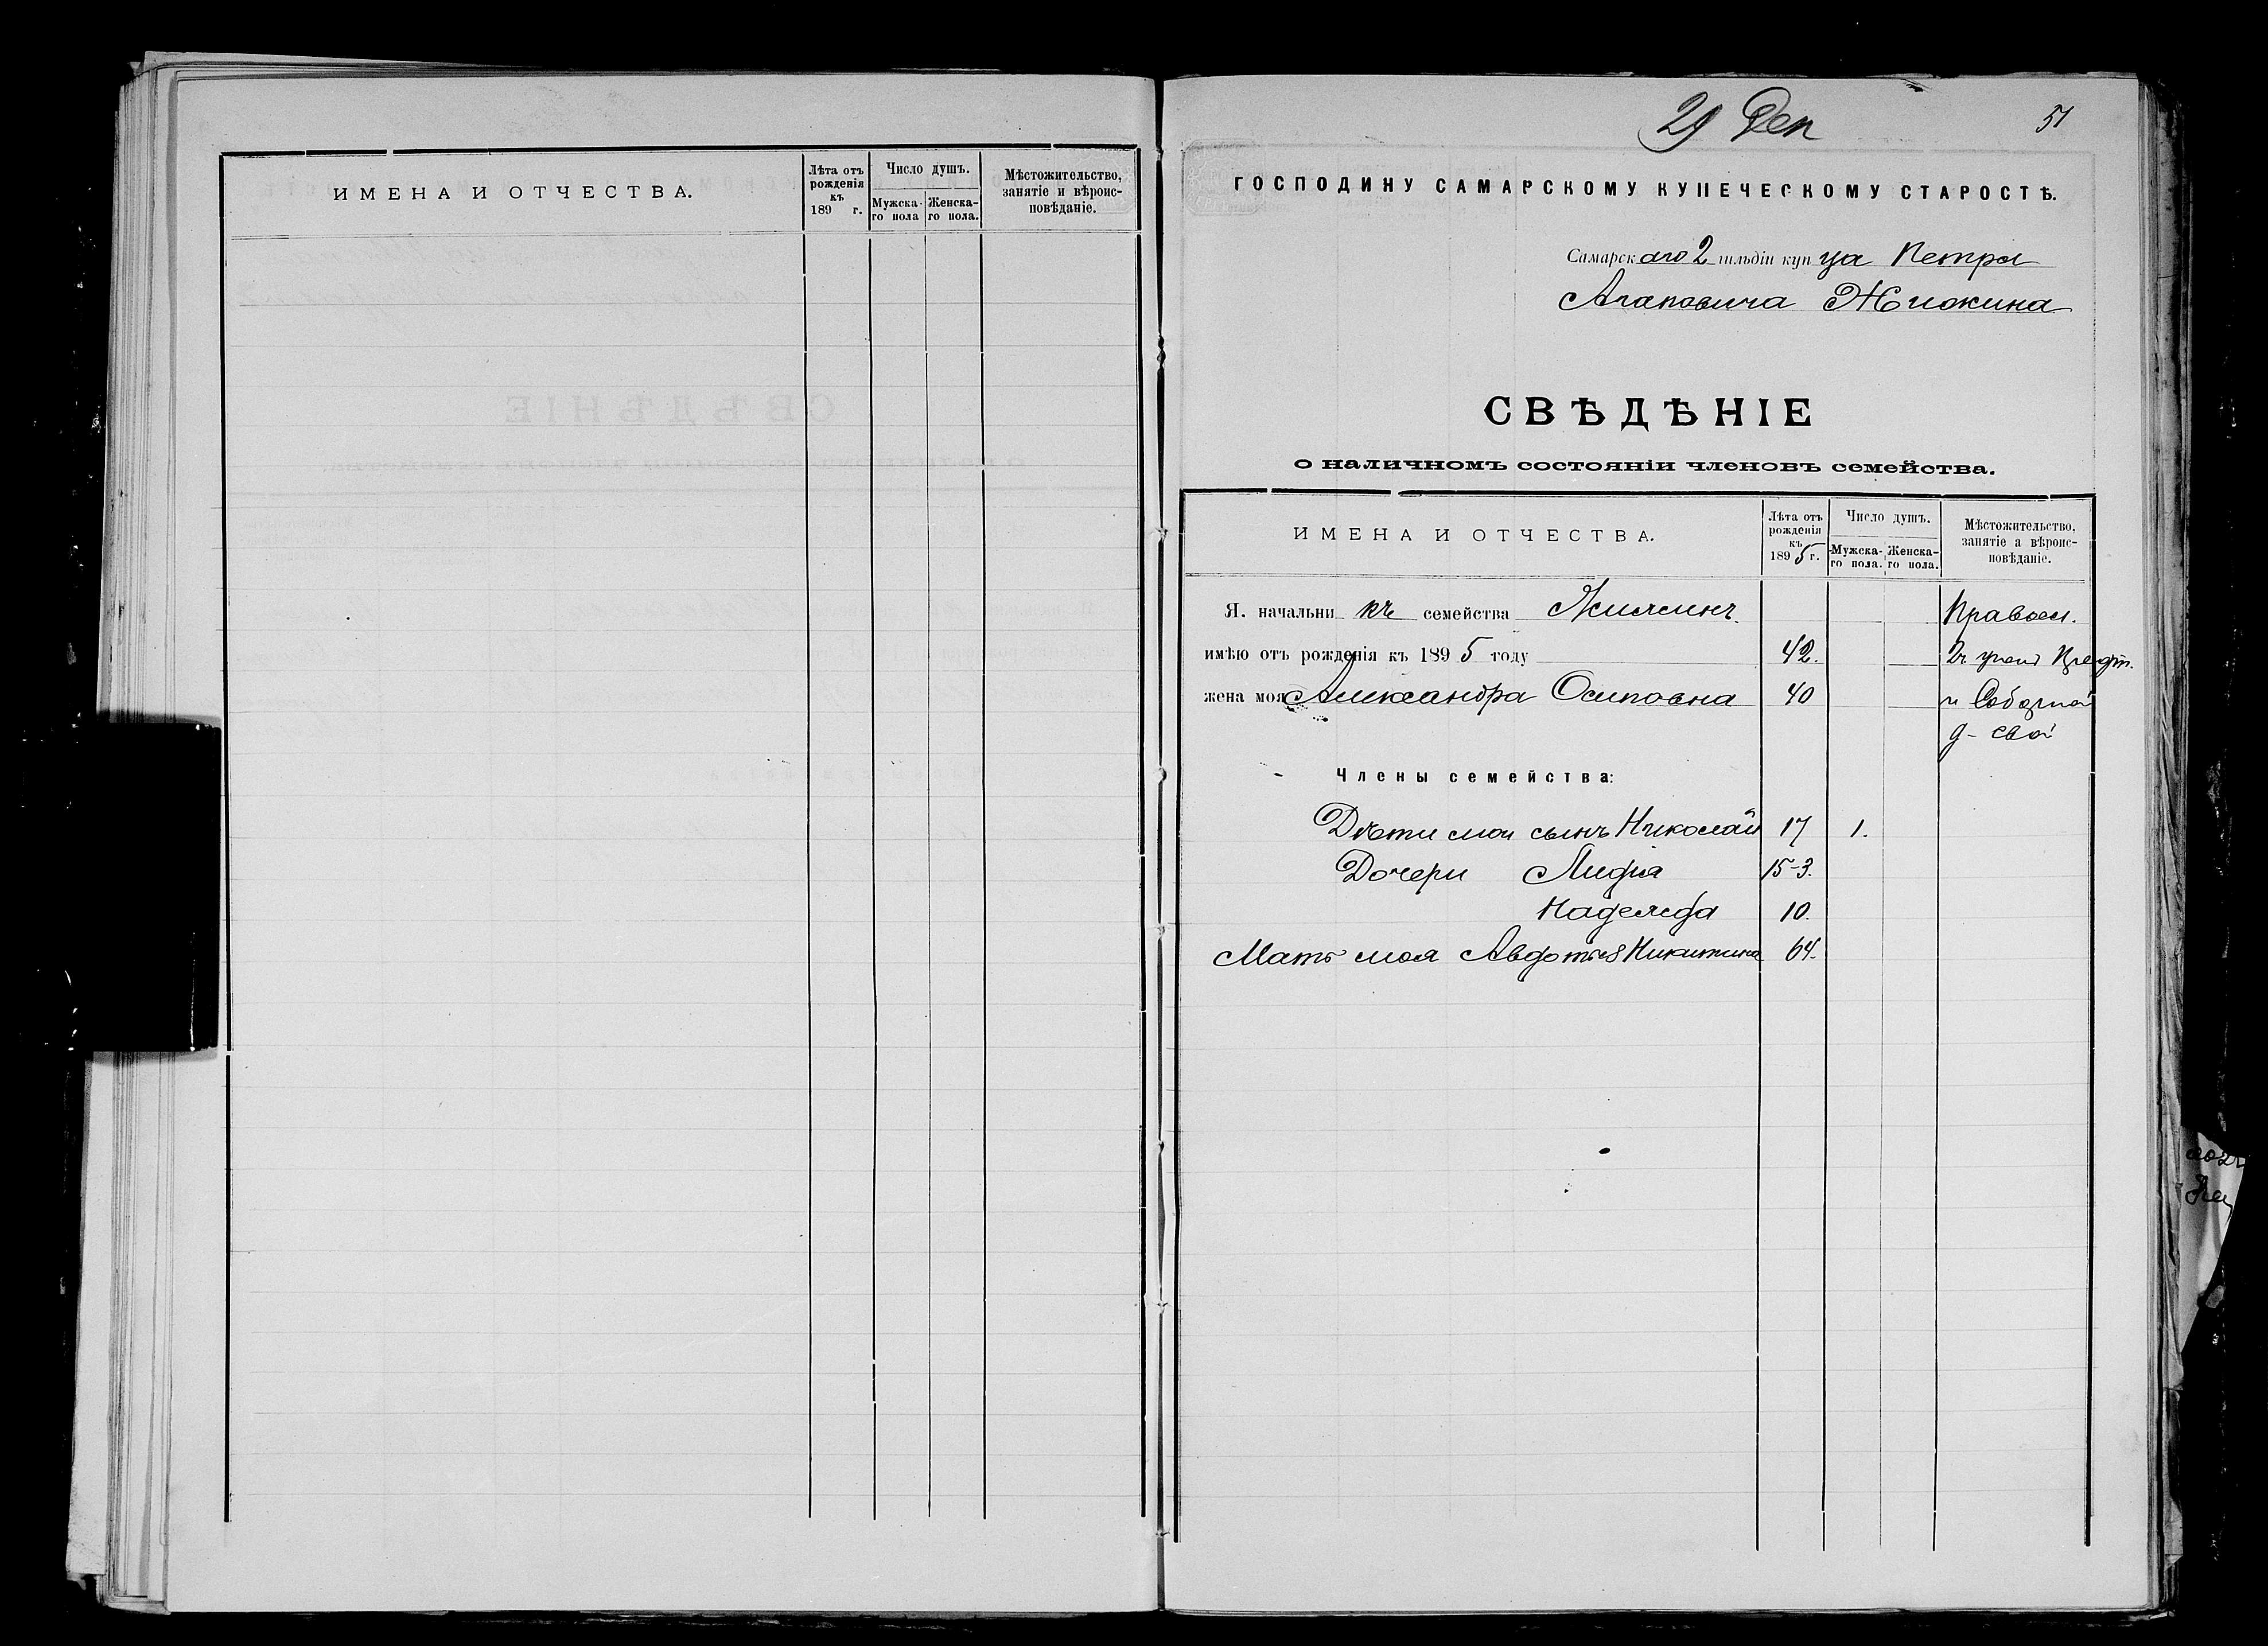 ИМЕНА И ОТЧЕСТВА.
Лѣта отъ рожденія къ 189 г.
Число душъ.
Мужскаго пола
Женскаго пола.
Мѣстожительство, занятіе и вѣроисповѣданіе.
29 Дек
51
ГОСПОДИНУ САМАРСКОМУ КУПЕЧЕСКОМУ СТАРОСТѢ.
Самарскаго 2 гильдіи купца Петра
Агаповича
СВѢДѢНІЕ
о наличномъ состояніи членовъ семейства.
ИМЕНА И ОТЧЕСТВА.
Лѣта отъ рожденія къ 1895 г.
Число душъ.
Мужскаго пола.
Женскаго пола.
Мѣстожительство, занятіе а вѣроисповѣданіе.
Я. начальникъ семейства
Правосл.
имѣю отъ рожденія къ 1895 году 42.
2ч
жена моя Александра Осиповна 40 и Соборной
д- свой
Члены семейства:
Дѣти мои сынъ Николай 17 1.
Дочери Лидія 15-3.
Надежда 10.
Мать моя Авдотья Никитина 64.